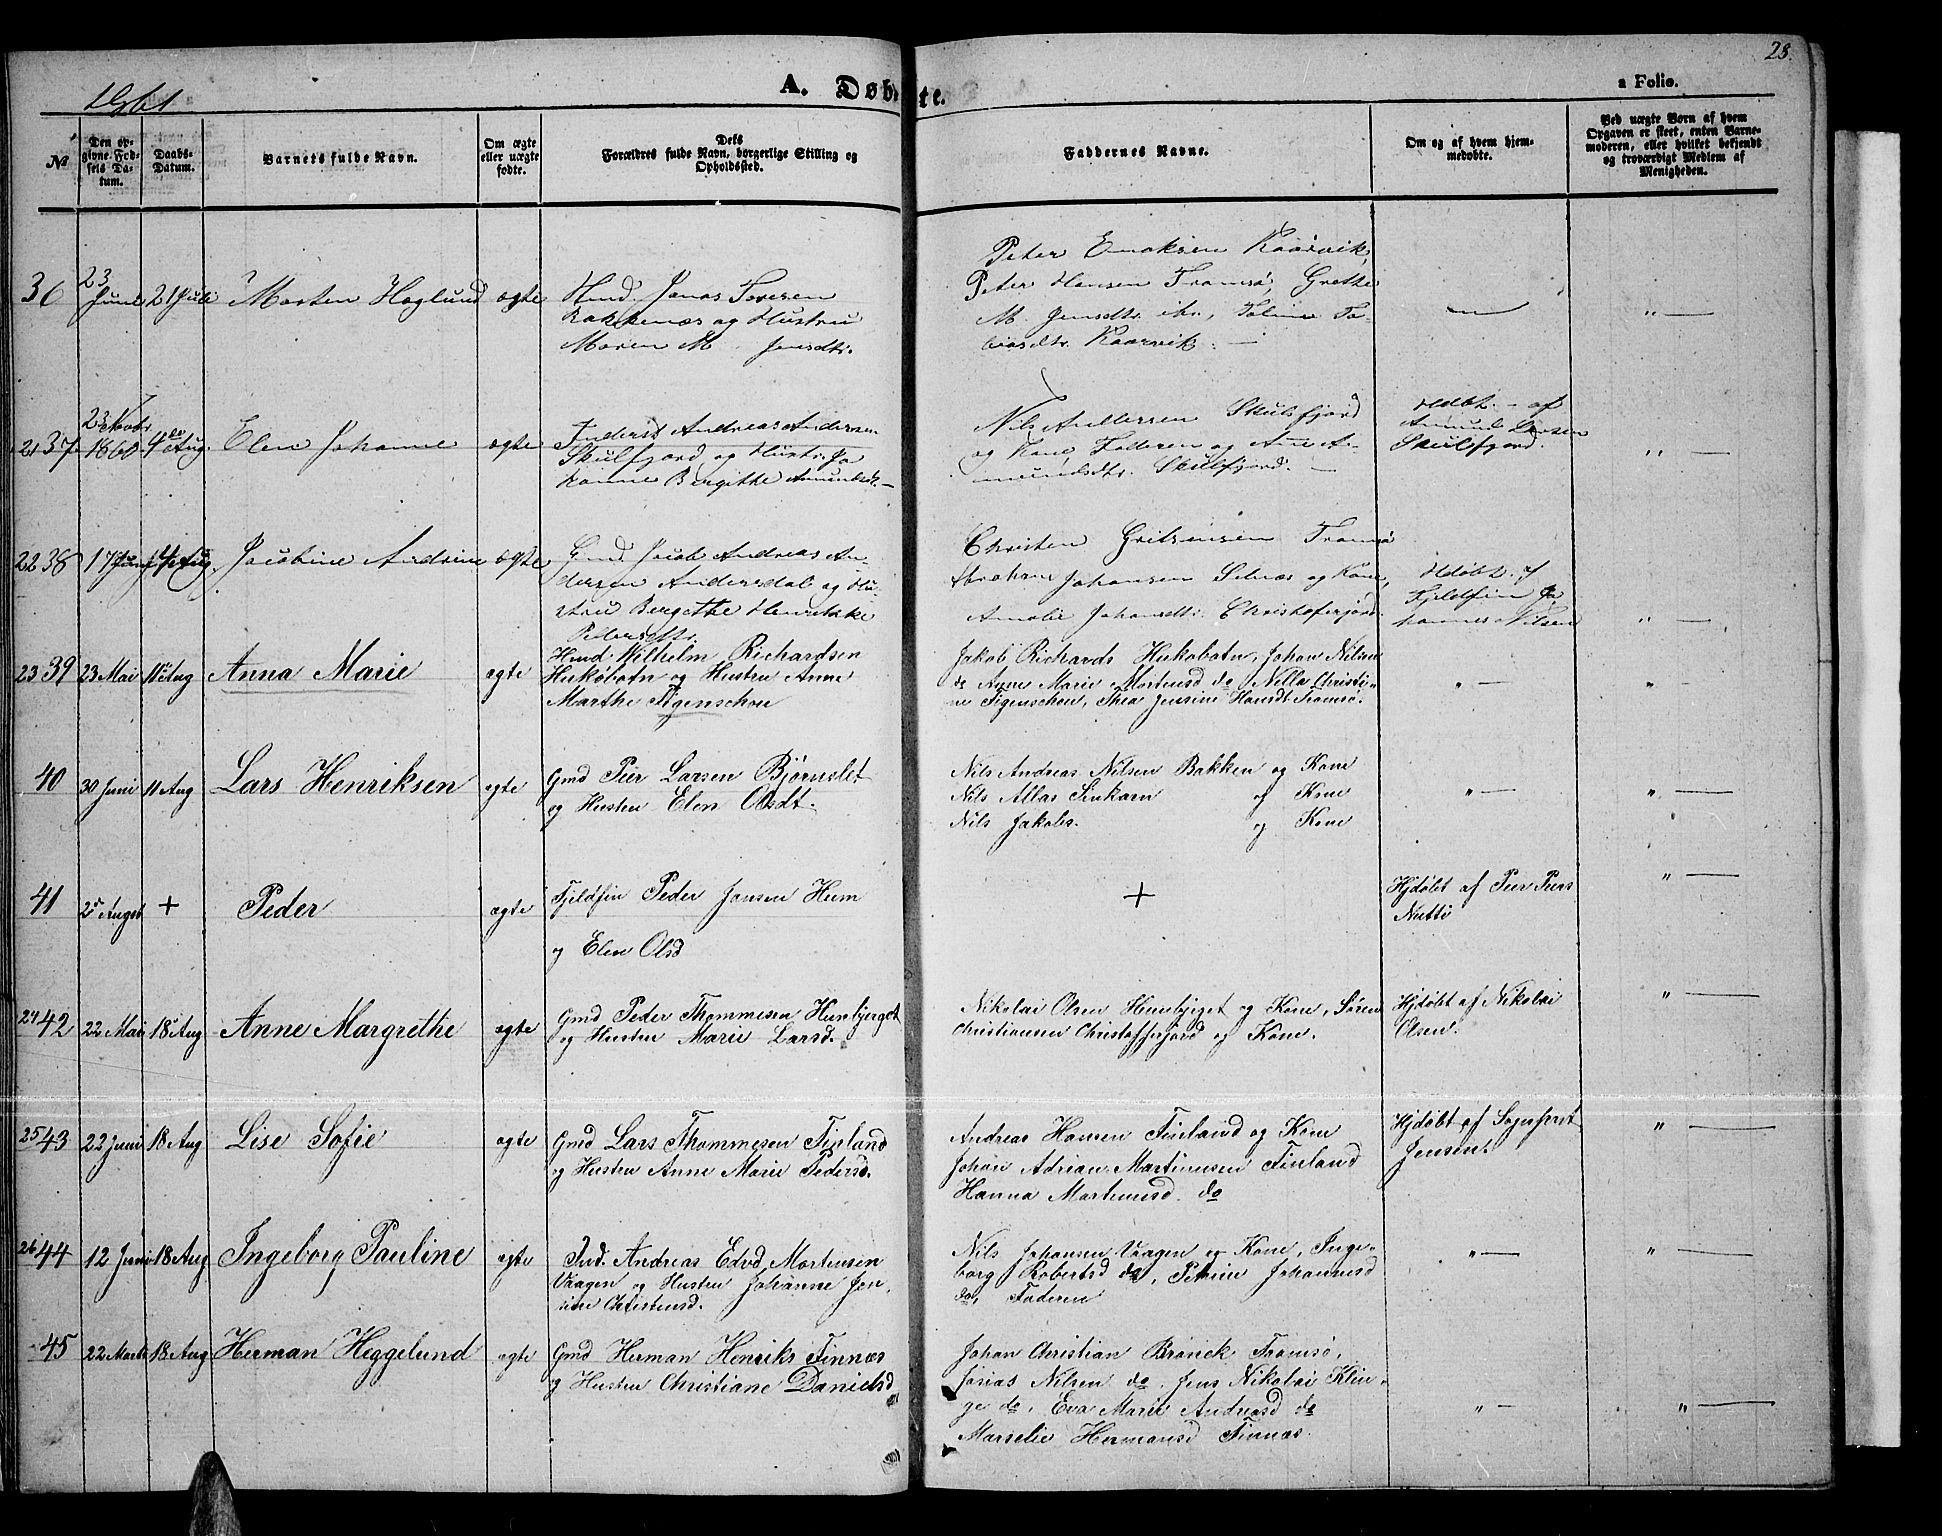 28.
1861
A. Døbte.
a Folio.
№
Den opgivne Fødsels Datum.
Daabs-Datum.
Barnets fulde Navn.
Om ægte eller uægte fødte.
Dets Forældres fulde Navn, borgerlige Stilling og Opholdssted.
Faddernes Navne.
Om og af hvem hjemmedøbte.
Ved uægte Born af hvem Opgaven er skeet, enten Barnemoderen, eller hvilket bekjendt og troværdigt Medlem af Menigheden.
36 23 Juni 21 Juli Morten Hoglund ægte Hmd. Jonas
og Hustru
Maren M. Jensdtr.
Peter Enoksen Kaarvik,
Peter Hansen Tromsø, Grethe
M. Jensdtr. ibr., Toline To-
biasdtr. Kaarvik. —
— " —
21 37 23 Novbr. 1860 4de Aug. Elen Johanne ægte Inderst Andreas Andersen
Skulfjord og Hustr. Jo
hanne Bergithe Amundsdtr. —
Nils Andersen Skulsfjord
og Kone, Faderen og Ane A-
mundsdtr. Skulfjord. —
Hdbt. — af
Amund Larsen
Skulfjord.
" —
22 38 17 Juni 4 Aug. Jacobine Andrine ægte Gmd. Jacob Andreas An-
dersen Andersdal og Hu-
stru Bergethe Henrikke
Pedersdtr.
Christen Tromsø
Abraham Johansen Selnæs og Kone,
Amalie Johansdtr. Christoferjord.
Hdøbt. af
Fjeldfin Jo
hannes Nilsen
" —
23 39 23 Mai 11te Aug Anna Marie ægte Hmd. Wilhelm Richardsen
Huskøbotn og Hustru Anne
Marthe Figenschou
Jakob Richards Huskobotn, Johan Nilsen
do Anne Marie Mortensd do, Nilla Christi-
ne Figenschou, Thea Jensine Hansdt Tromsø.
" — " —
40 30 Juni 11 Aug Lars Henriksen ægte Gmd Peer Larsen Bjørnslet
og Hustru Elen Olsdt.
Nils Andreas Nilsen Bakken og Kone
Nils Allas Sinkarn og Kone
Nils Jakobs. og Kone
" — " —
41 2de August + Peder ægte Fjeldfin Peder Jonsen Hum
og Elen Olsd
+
Hjdøbt af Peer Peers
Nutti
" —
24 42 22 Mai 18de Aug Anne Margrethe ægte Gmd Peder Thommesen Hunbjerget
og Hustru Marie Larsd.
Nikolai Olsen Hunbjerget og Kone, Søren
Christiansen Christofferjord og Kone.
Hjdøbt af Nikolai
Olsen.
" —
25 43 22 Juni 18 Aug Lise Sofie ægte Gmd Lars Thommesen Finland
og Hustru Anne Marie Pedersd.
Andreas Hansen Finland og Kone
Johan Adrian Martinusen Finland
Hanna Martinusd. do
Hjdøbt af Sognprst
Jensen.
" —
26 44 12 Juni 18 Aug Ingeborg Pauline ægte Ind. Andreas Edvd. Mortensen
Vaagen og Hustru Johanne Jen-
sine Christensd.
Nils Johansen Vaagen og Kone, Inge-
borg Robertsd do, Petrine Johannesd
do, Faderen
" — " —
45 22 Marts 18 Aug Herman Heggelund ægte Gmd Herman Henriks Finnæs
og Hustru Christiane Danielsd
Johan Christian Brønek Tromsø,
Josias Nilsen do. Jens Nikolai Klin-
ge do, Eva Marie Andreasd do
Marselie Hermansd Finnæs.
" — " —